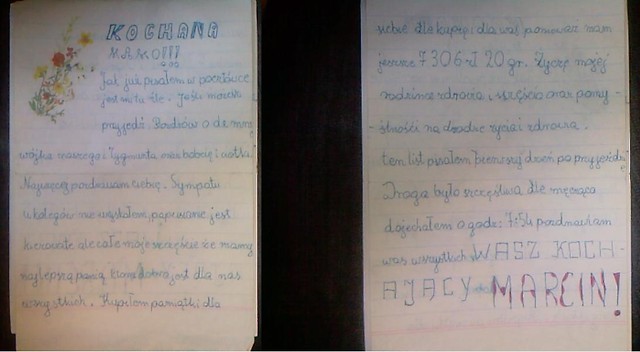 KOCHANA
MAMO!!!
Jak już pisałem w pocztówce
jest mi tu źle. Jeśli możesz
przyjedź. Pozdrów ode mnie
wójka naszego i Zygmunta oraz babcię i ciotkę
Najwięcej pozdrawiam ciebie. Sympatii
u kolegów nie wzystałem, jest
kierownte ale całe moje szczęście że mamy
najlepszą panią która dobra jest dla nas
wszystkich. Kupiłem pamiątki dla
siebie dle kupię i dla was ponieważ mam
jeszcze 7306 zł 20 gr. Życzę mojej
rodzince zdrowia, szczęścia oraz pomy-
-ślności na drodze życia i zdrowia.
ten list pisałem pierwszy dzień po przyjeździe
Droga była szczęśliwa dle męcząca
dojechałem o godz: 7:54 pozdrawiam
was wszystkich WASZ KOCH-
AJĄCY MARCIN!